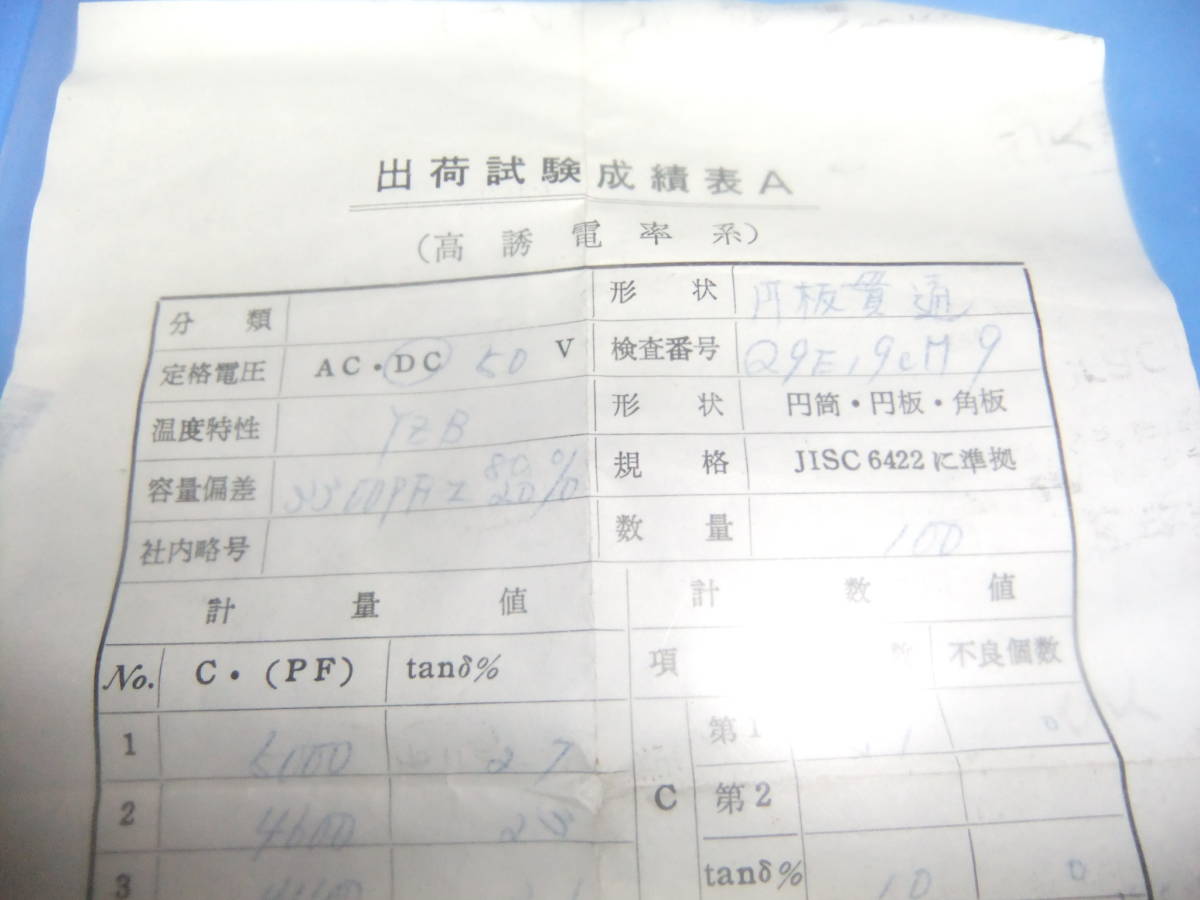 出荷試験成績表A
(高誘電率系)
分類
形状 円板貫通
定格電圧 AC・DC 50 V
検査番号
温度特性 YZB
形状 円筒・円板・角板
容量偏差 80 20 %
規格 JISC6422に準拠
社内略号
数量 100
計量値 計数値
No. C・(PF) tanδ% 項 不良個数
1 5000 2.7 第1 0
2 4600 C 第2
3 tanδ% 10 0